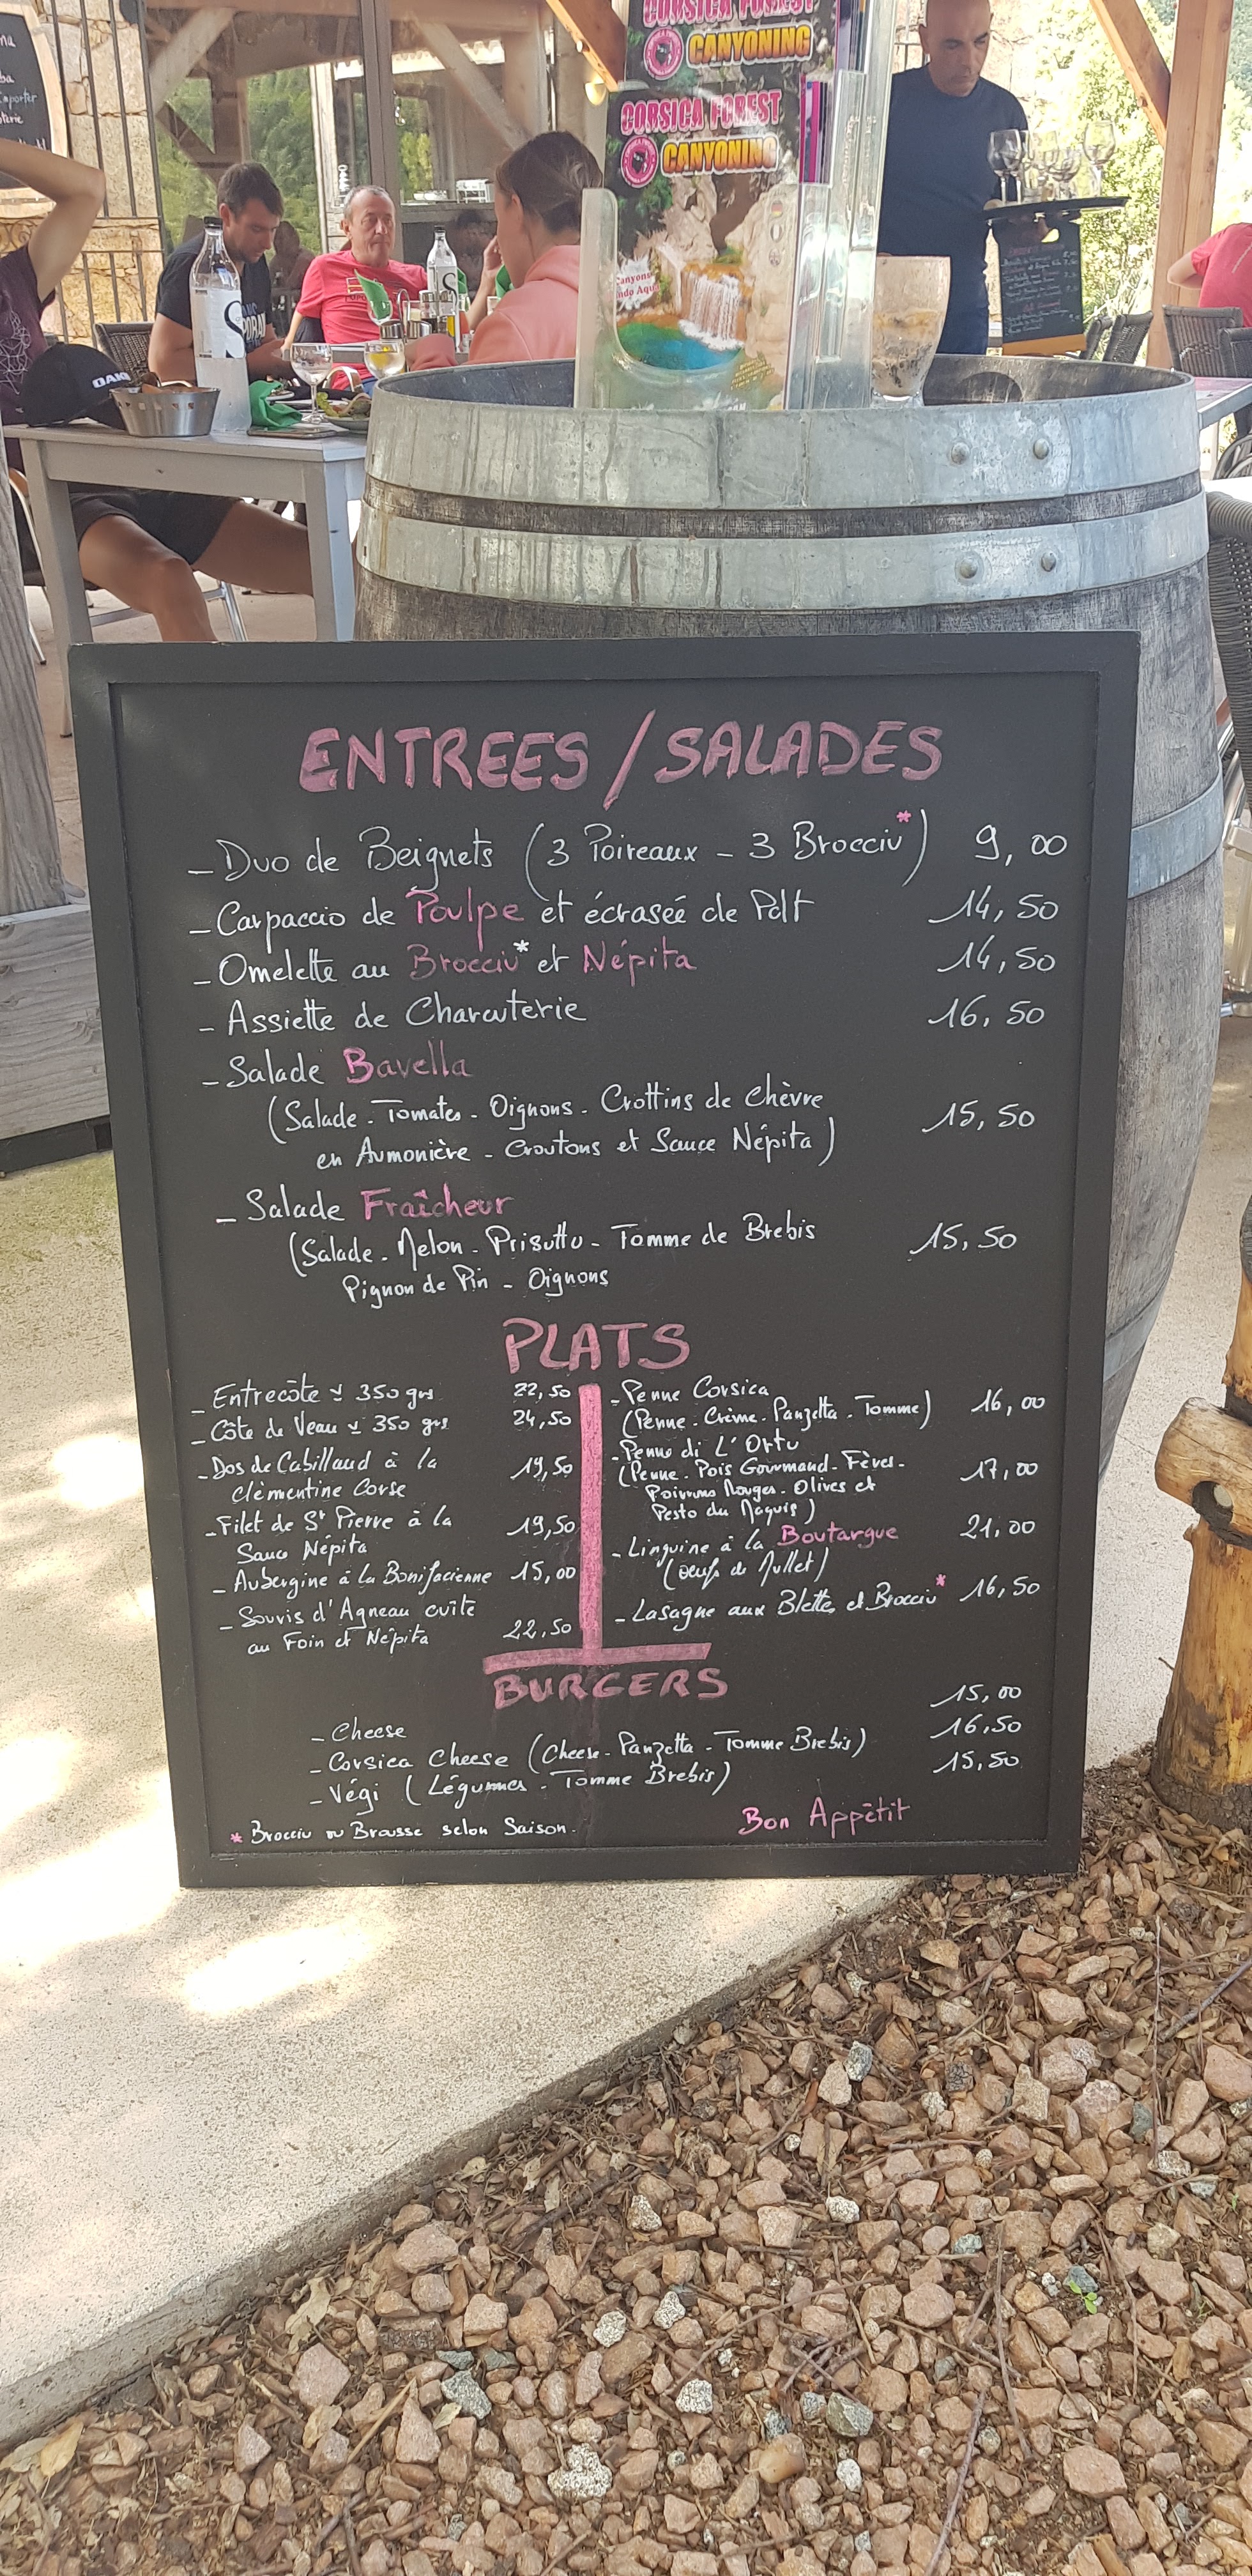 CORSICA FOREST
CANYONING
CORSICA FOREST
CANYONING
OAK
ENTREES / SALADES
- Duo de Beignets (3 Poireaux - 3 Brocciu*) 9,00
- Carpaccio de Poulpe et écrasée de Pdt 14,50
- Omelette au Brocciu* et Népita 14,50
- Assiette de Charcuterie 16,50
- Salade Bavella
(Salade - Tomates - Oignons - Crottins de Chèvre
en Aumonière - Croutons et Sauce Népita) 15,50
- Salade Fraîcheur
(Salade - Melon - Prisuttu - Tomme de Brebis 15,50
Pignon de Pin - Oignons
PLATS
- Entrecôte ± 350 grs 22,50
- Côte de Veau ± 350 grs 24,50
- Dos de Cabillaud à la 19,50
clémentine Corse
- Filet de St Pierre à la 19,50
Sauce Népita
- Aubergine à la Bonifacienne 15,00
- Souris d'Agneau cuite
au Foin et Népita 22,50
- Penne Corsica
(Penne - Crème - Panzetta - Tomme) 16,00
- Penne di L'Ortu
(Penne - Pois Gourmand - Fèves - 17,00
Poivrons Rouges - Olives et
Pesto du Maquis)
- Linguine à la Boutargue 21,00
(oeufs de Mullet)
- Lasagne aux Blettes et Brocciu* 16,50
BURGERS
- Cheese 15,00
- Corsica Cheese (Cheese - Panzetta - Tomme Brebis) 16,50
- Végi (Légumes - Tomme Brebis) 15,50
* Brocciu ou Brousse selon Saison.
Bon Appétit